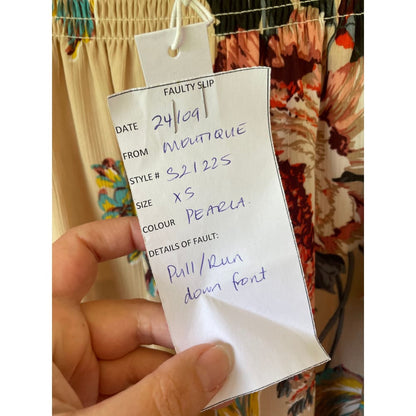 FAULTY SLIP
DATE 24/09
FROM MOUTIQUE
STYLE # S21225
SIZE XS
COLOUR PEARLA.
DETAILS OF FAULT:
Pull/Run
down front